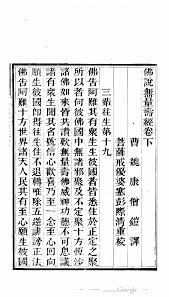 佛說無量壽經卷下
曹魏康僧鎧譯
菩薩戒優婆塞彭際清重校
三輩往生第十九
佛告阿難其有眾生生彼國者皆悉住於正定之聚
所以者何彼佛國中無諸邪聚及不定聚十方恆沙
諸佛如來皆共讚歎無量壽佛威神功德不可思議
諸有眾生聞其名號信心歡喜乃至一念至心回向
願生彼國即得往生住不退轉唯除五逆誹謗正法
佛告阿難十方世界諸天人民其有至心願生彼國